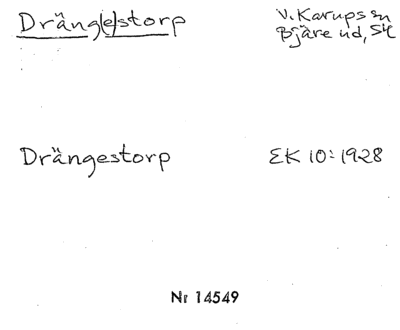 Dräng(e)storp
V. Karups sn
Bjäre hd, Sk
Drängestorp
EK 10:1928
Nr 14549